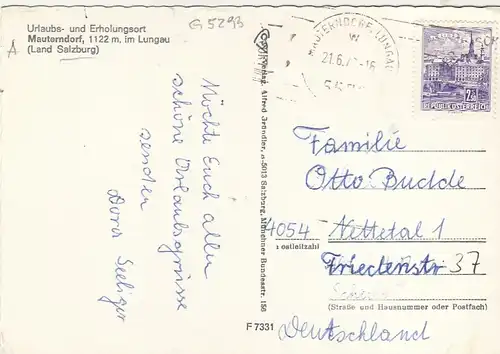 G 5293
A
Urlaubs- und Erholungsort
Mauterndorf, 1122 m, im Lungau
(Land Salzburg)
Möchte Euch allen
schöne Urlaubsgrüsse
senden
Doris Seeliger
Alfred Gründler, A-5013 Salzburg, Münchner Bundesstr. 156
F 7331
MAUTERNDORF, LUNGAU
21.6.7
-16
REPUBLIK ÖSTERREICH
Familie
Otto Budde
4054 Nettetal 1
Postleitzahl
Friedenstr 37
(Straße und Hausnummer oder Postfach)
Deutschland